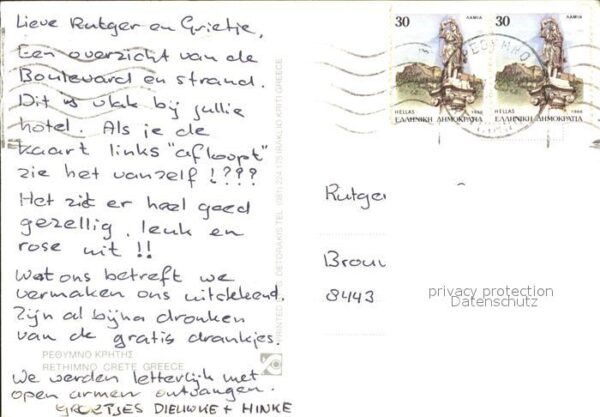 Lieve Rutger en Grietje,
Een overzicht van de
Boulevard en strand.
Dit is vlak bij jullie
hotel. Als je de
kaart links "afloopt"
zie het vanzelf !???
Het ziet er heel goed
gezellig, leuk en
rose uit !!
Wat ons betreft we
vermaken ons uitstekend.
Zijn al bijna dronken
van de gratis drankjes.
ΡΕΘΥΜΝΟ ΚΡΗΤΗΣ
RETHIMNO CRETE GREECE
We werden letterlijk met
open armen ontvangen.
GROETJES DIEUWKE + HINKE
30 ΛΑΜΙΑ
HELLAS 1988
ΕΛΛΗΝΙΚΗ ΔΗΜΟΚΡΑΤΙΑ
30 ΛΑΜΙΑ
HELLAS 1988
ΕΛΛΗΝΙΚΗ ΔΗΜΟΚΡΑΤΙΑ
Rutger
8443
privacy protection
Datenschutz